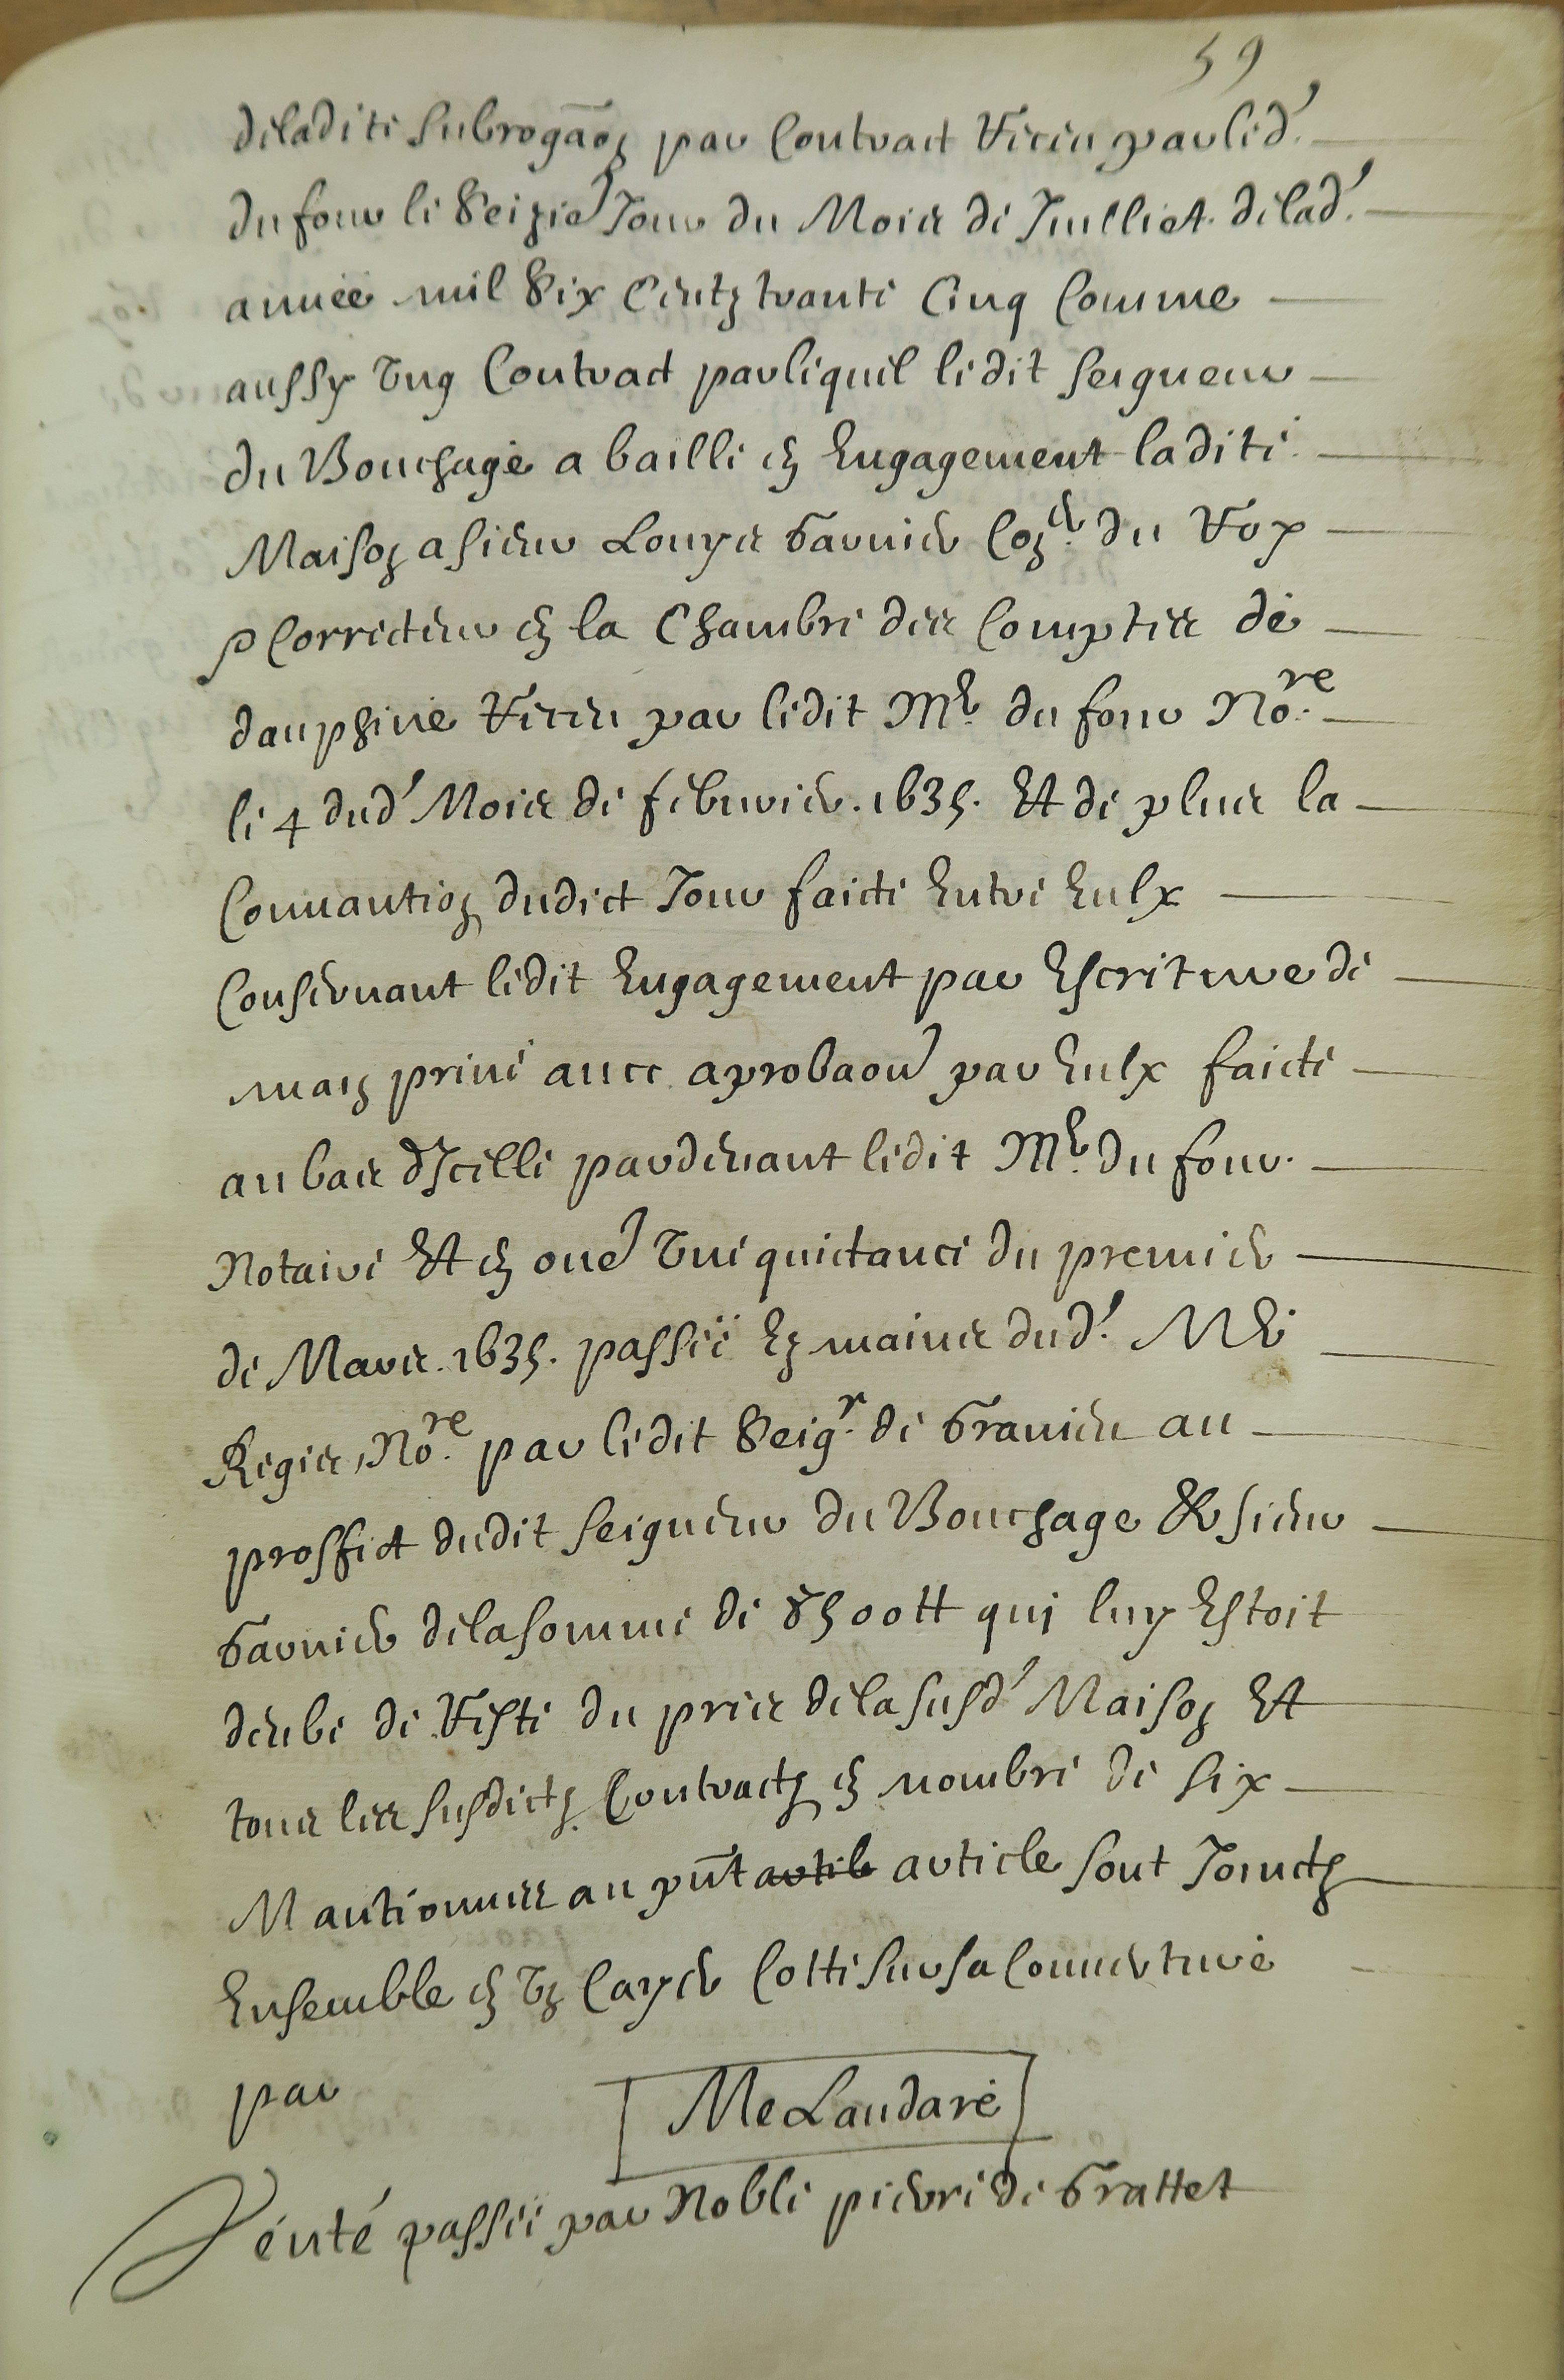 59
deladite subrogãon par Contract Receu par led.
du four le Seizie Jour du Mois de Juilliet. delad.
annee mil Six Centz trante Cinq Comme
aussy Ung Contract par lequel ledit seigneur
du Bouchage a baille en Engagement ladite
Maison a sieur Louys Garnier Con.er du Roy
& Correcteur en la Chambre des Comptes de
dauphine Receu par ledit Me. du four No.re
le 4 dud. Mois de febvrier. 1635. Et de plus la
Convantion dudict Jour faicte Entre Eulx
Consernant ledit Engagement par Escriture de
main prive avec aprobaon par Eulx faicte
au bas d'Icelle pardevant ledit Me. du four.
Notaire Et en oue Une quictance du premier
de Mars. 1635. passëe Ez mains dud. Me
Regis, No.re par ledit Seig.r de Granieu au
proffict dudit seigneur du Bouchage & sieur
Garnier dela somme de 8500tt qui luy Estoit
deube de Reste du pris dela susd. Maison Et
tous les susdictz Contractz en nombre de six
Mantionnes au pñt artile article sont Joinctz
Ensemble en Un Cayer Cotte sur sa Couverture
par
Me Landare
Venté passëe par Noble pierre de Grattet